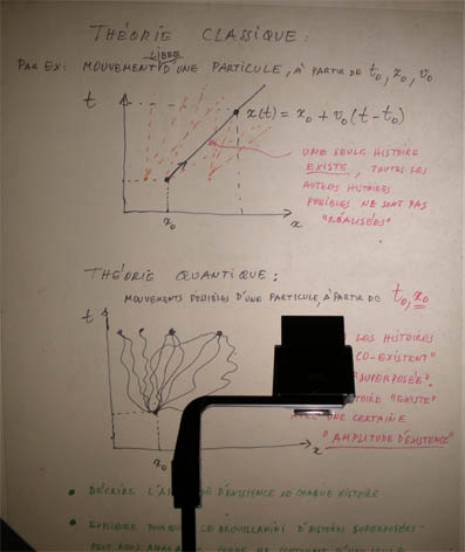 THÉORIE CLASSIQUE :
LIBRE
PAR EX: MOUVEMENT D'UNE PARTICULE, À PARTIR DE t₀, x₀, v₀
t
x(t) = x₀ + v₀(t-t₀)
UNE SEULE HISTOIRE
EXISTE, TOUTES LES
AUTRES HISTOIRES
POSSIBLES NE SONT PAS
"RÉALISÉES"
x₀
x
THÉORIE QUANTIQUE :
MOUVEMENTS POSSIBLES D'UNE PARTICULE, À PARTIR DE t₀, x₀
t
LES HISTOIRES
CO-EXISTENT"
SUPERPOSÉE".
"EXISTE"
AVEC UNE CERTAINE
"AMPLITUDE D'EXISTENCE"
x₀
x
• DÉCRIRE D'EXISTENCE DE CHAQUE HISTOIRE
• CE BROUILLAMINI D'HISTOIRES SUPERPOSÉES